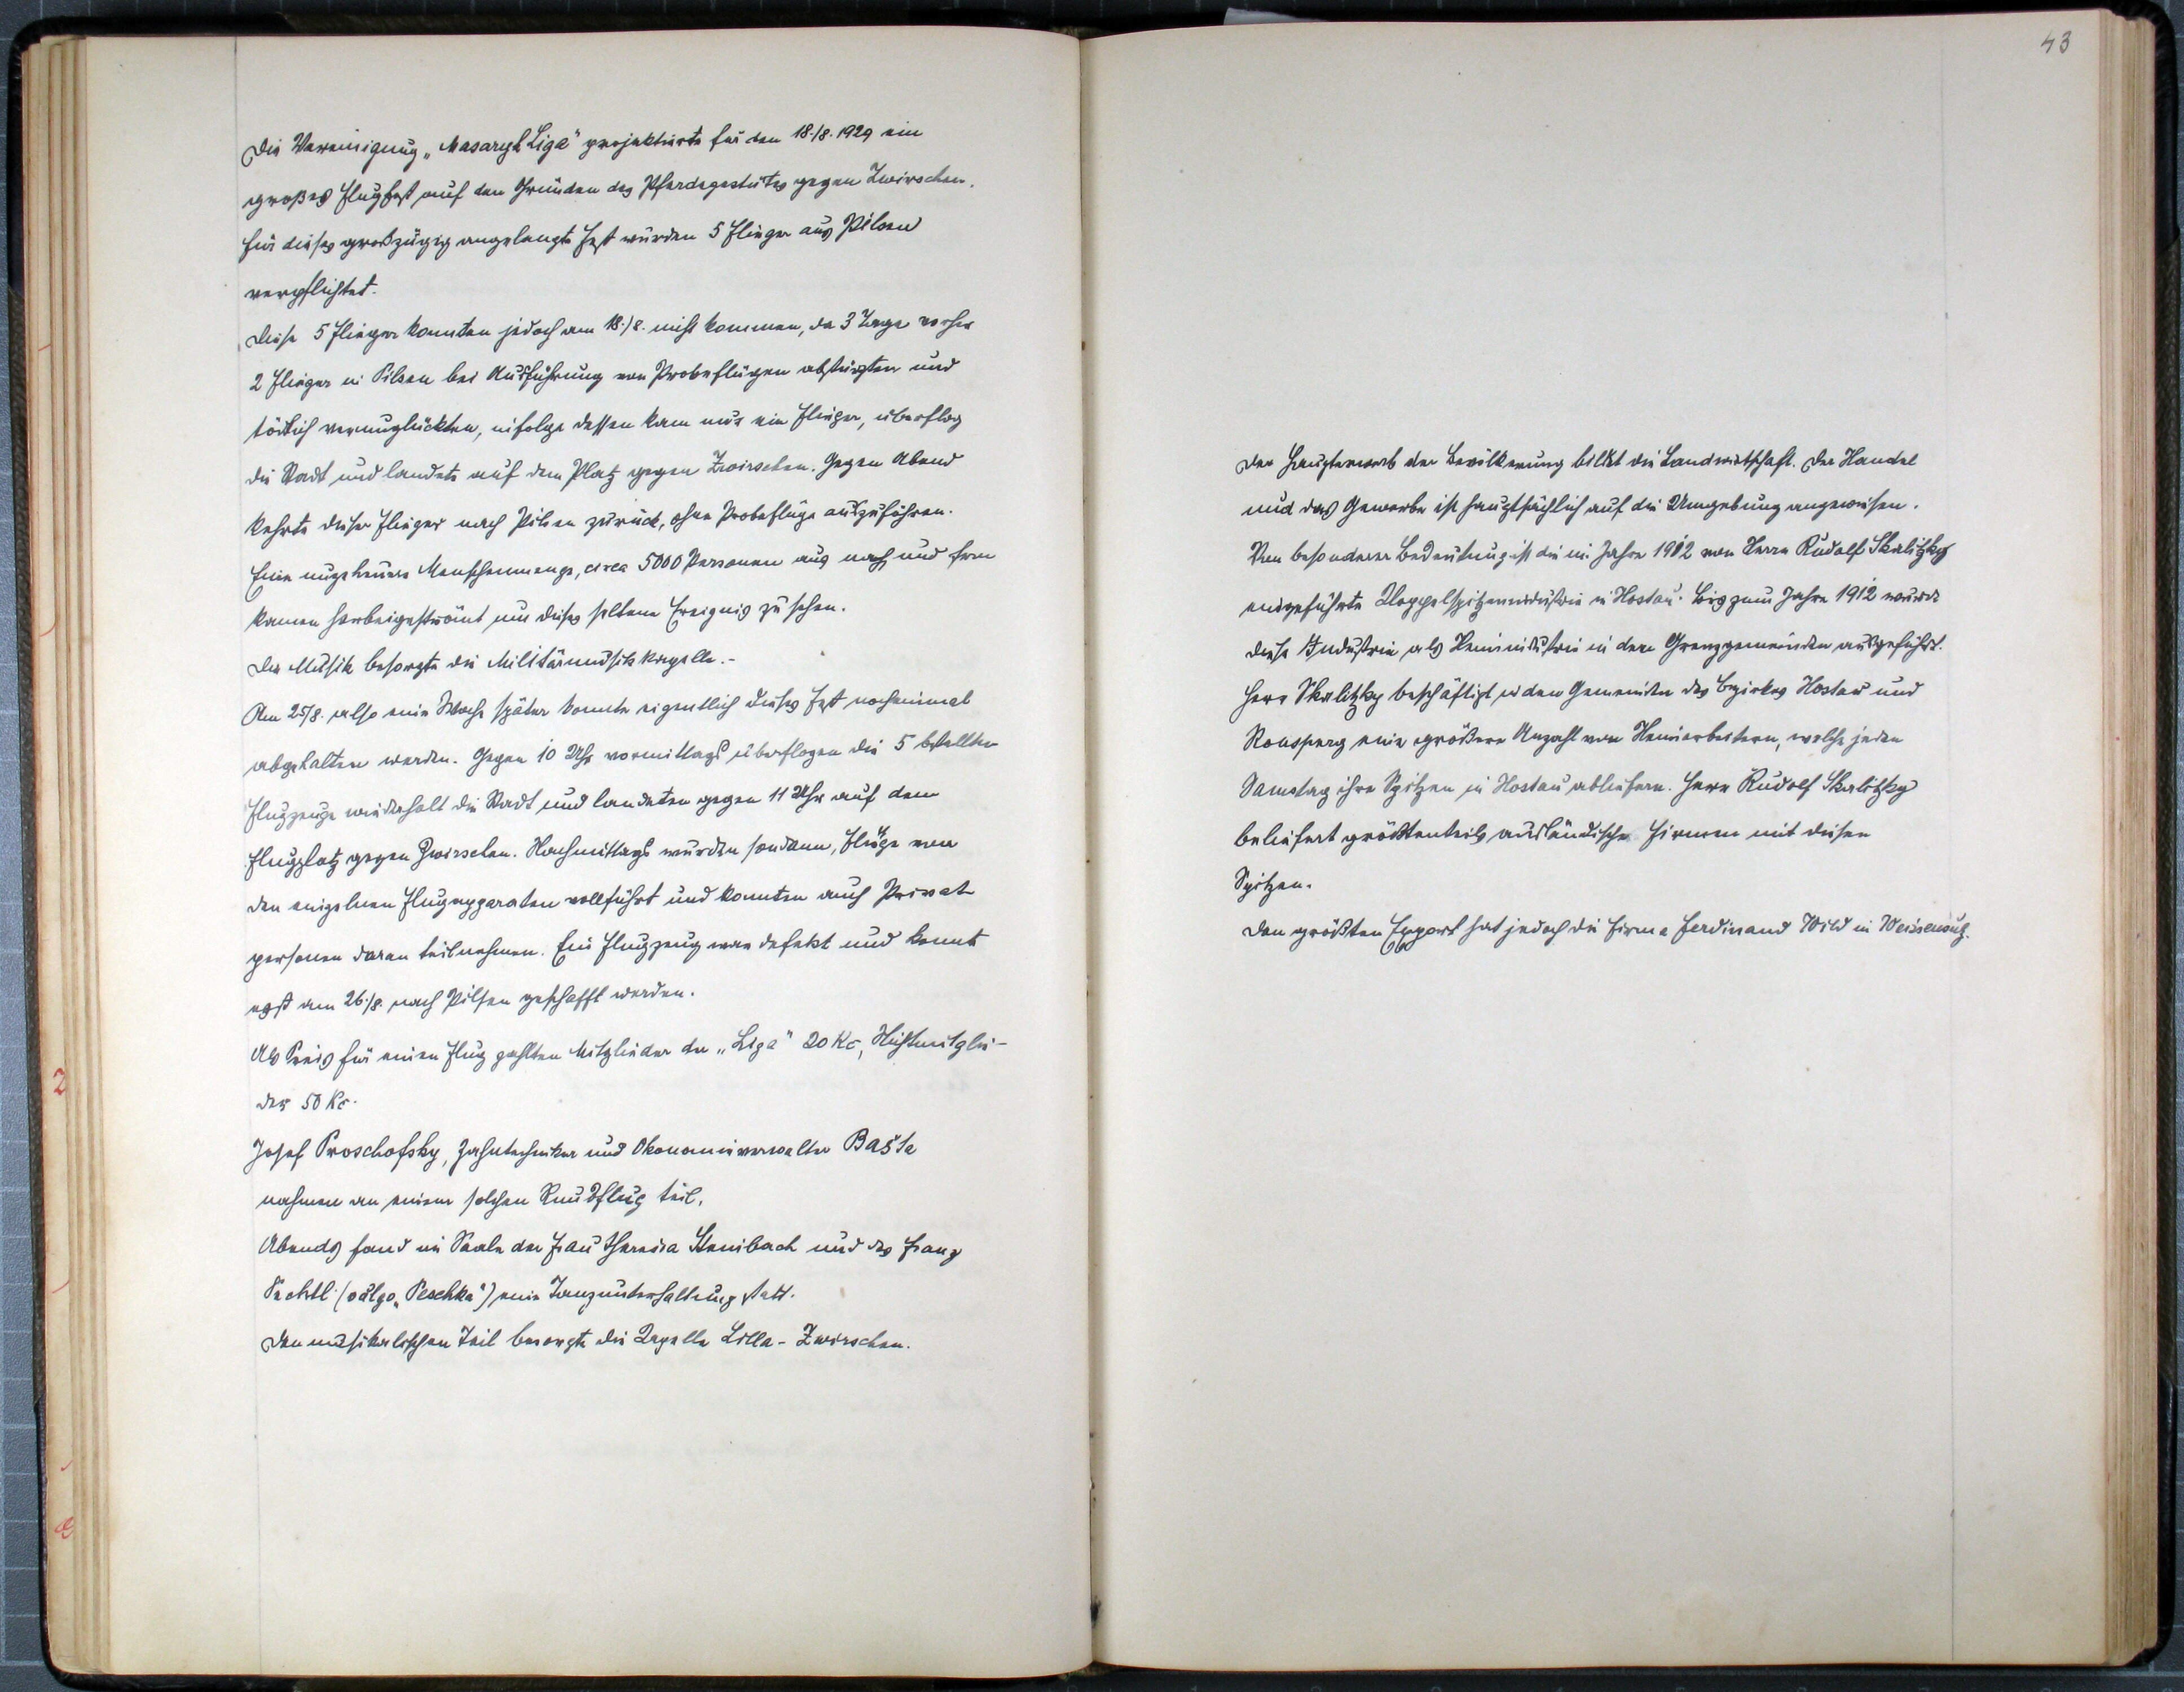 Die Vereinigung „Masaryk Liga" projektierte für den 18./8. 1929 ein
großes Flugfest auf den Gründen des Pferdegestütes gegen Zwirschen.
Für dieses großzügig angelangte Fest wurden 5 Flieger aus Pilsen
verpflichtet.
Diese 5 Flieger konnten jedoch am 18./8. nicht kommen, da 3 Tage vorher
2 Flieger in Pilsen bei Ausführung von Probeflügen abstürzten und
tödlich verunglückten, infolge dessen kam nur ein Flieger, überflog
die Stadt und landete auf dem Platz gegen Zwirschen. Gegen Abend
kehrte dieser Flieger nach Pilsen zurück, ohne Probeflüge auszuführen.
Eine ungeheuere Menschenmenge, circa 5000 Personen aus nah und fern
kamen herbeigeströmt um dieses seltene Ereignis zu sehen.
Die Musik besorgte die Militärmusikkapelle.-
Am 25/8. also eine Woche später konnte eigentlich dieses Fest nocheinmal
abgehalten werden. Gegen 10 Uhr vormittags überflogen die 5 bestellten
Flugzeuge wiederholt die Stadt und landeten gegen 11 Uhr auf dem
Flugplatz gegen Zwirschen. Nachmittags wurden sodann, Flüge von
den einzelnen Flugapparaten vollführt und konnten auch Privat
personen daran teilnehmen. Ein Flugzeug war defekt und konnte
erst am 26./8. nach Pilsen geschafft werden.
Als Preis für einen Flug zahlten Mitglieder der „Liga" 20 Kc, Nichtmitglie-
der 50 Kc.
Josef Proschofsky, Zahntechniker und Ökonomieverwalter Bašta
nahmen an einem solchen Rundflug teil.
Abends fand im Saale der Frau Theresia Steinbach und des Franz
Pechtl (vulgo „Peschka") eine Tanzunterhaltung statt.
Den musikalischen Teil besorgte die Kapelle Lilla - Zwirschen.
43
Der Haupterwerb der Bevölkerung bildet die Landwirtschaft. Der Handel
und das Gewerbe ist hauptsächlich auf die Umgebung angewiesen.
Von besonderer Bedeutung ist die im Jahre 1902 von Herrn Rudolf Skalitzky
eingeführte Kloppelspitzenindustrie in Hostau. Bis zum Jahre 1912 wurde
diese Industrie als Heimindustrie in den Grenzgemeinden ausgeführt.
Herr Skalitzky beschäftigt in den Gemeinden des Bezirkes Hostau und
Ronsperg eine größere Anzahl von Heimarbeitern, welche jeden
Samstag ihre Spitzen in Hostau abliefern. Herr Rudolf Skalitzky
beliefert größtenteils ausländische Firmen mit diesen
Spitzen.
Den größten Export hat jedoch die Firma Ferdinand Wild in Weißensulz.